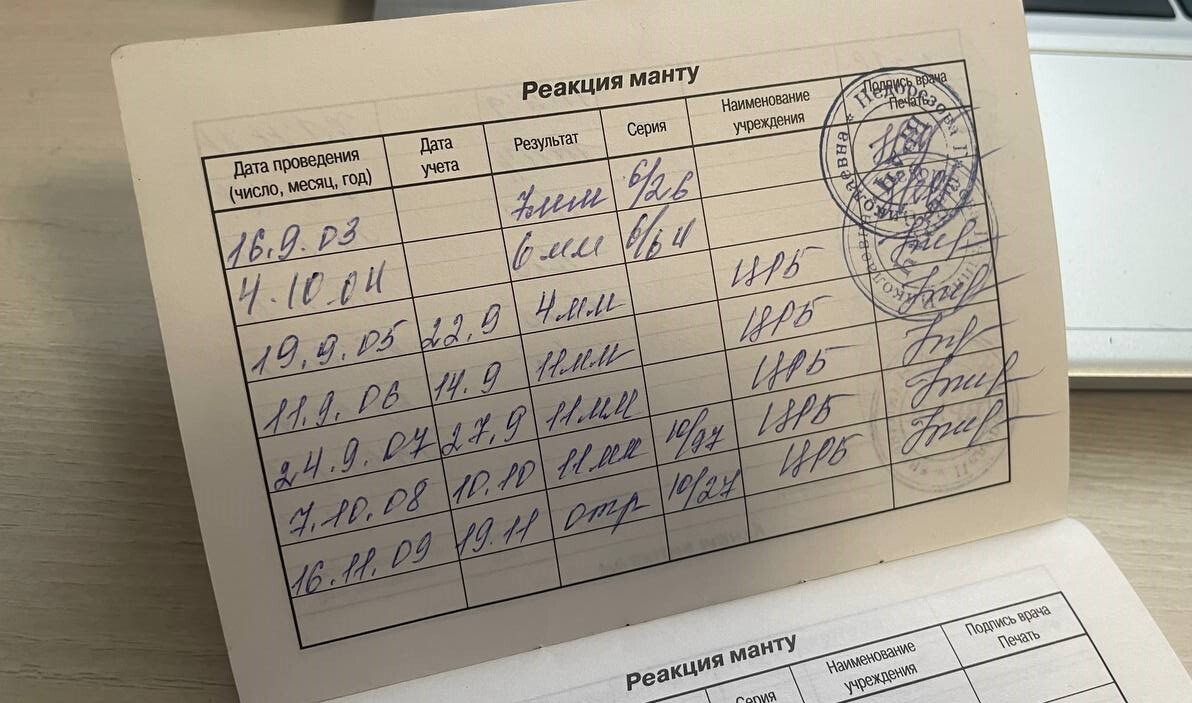 Реакция манту
Дата проведения (число, месяц, год) Дата учета Результат Серия Наименование учреждения Подпись врача Печать
16.9.03 7мм 6/26
4.10.04 6мм 6/64
19.9.05 22.9 4мм ЦРБ
11.9.06 14.9 11мм ЦРБ
24.9.07 27.9 11мм ЦРБ
7.10.08 10.10 11мм 10/97 ЦРБ
16.11.09 19.11 отр 10/27 ЦРБ
Недорезова
николаевна
ВРАЧ
Реакция манту
Серия Наименование учреждения Подпись врача Печать